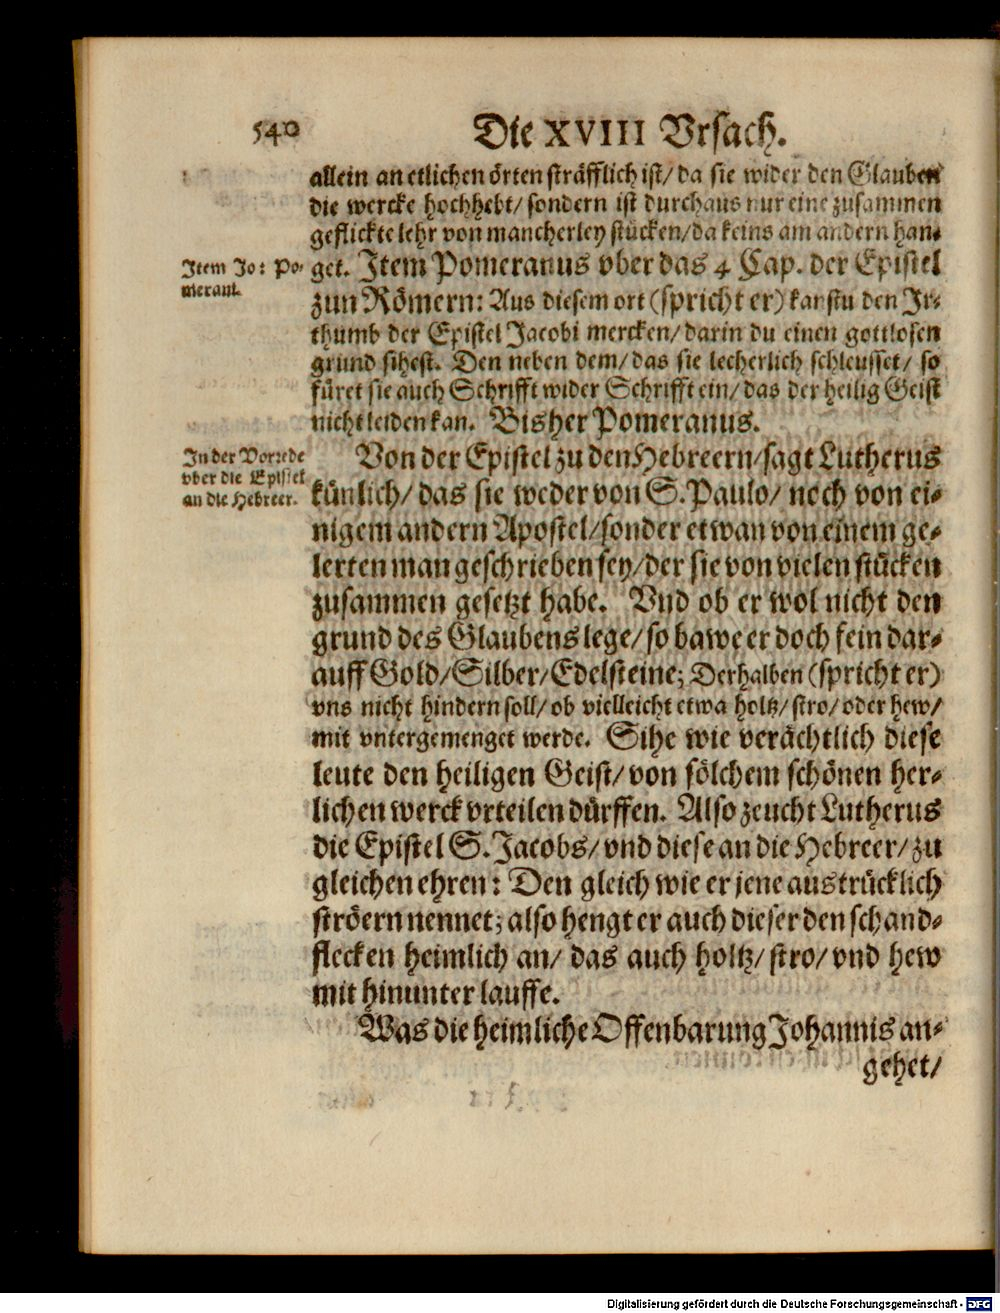 540
Die XVIII Vrsach.
allein an etlichen örten sträfflich ist/ da sie wider den Glauben
die wercke hochhebt/ sondern ist durchaus nur eine zusammen
geflickte lehr von mancherley stücken/ da keins am andern han-
Item Jo: Po-
merant.
get. Item Pomeranus vber das 4 Cap. der Epistel
zun Römern: Aus diesem ort (spricht er) kanstu den Jr-
thumb der Epistel Jacobi mercken/ darin du einen gottlosen
grund sihest. Den neben dem/ das sie lecherlich schleusset/ so
füret sie auch Schrifft wider Schrifft ein/ das der heilig Geist
nicht leiden kan. Bisher Pomeranus.
In der Vorrede
vber die Epistel
an die Hebreer.
Von der Epistel zu den Hebreern/ sagt Lutherus
künlich/ das sie weder von S. Paulo/ noch von ei-
nigem andern Apostel/ sonder etwan von einem ge-
lerten man geschrieben sey/ der sie von vielen stücken
zusammen gesetzt habe. Vnd ob er wol nicht den
grund des Glaubens lege/ so bawe er doch fein dar-
auff Gold/ Silber/ Edelsteine; Derhalben (spricht er)
vns nicht hindern soll/ ob vielleicht etwa holtz/ stro/ oder hew/
mit vntergemenget werde. Sihe wie verächtlich diese
leute den heiligen Geist/ von sölchem schönen her-
lichen werck vrteilen dürffen. Also zeucht Lutherus
die Epistel S. Jacobs/ vnd diese an die Hebreer/ zu
gleichen ehren: Den gleich wie er jene austrücklich
ströern nennet; also hengt er auch dieser den schand-
flecken heimlich an/ das auch holtz/ stro/ vnd hew
mit hinunter lauffe.
Was die heimliche Offenbarung Johannis an-
gehet/
Digitalisierung gefördert durch die Deutsche Forschungsgemeinschaft - DFG